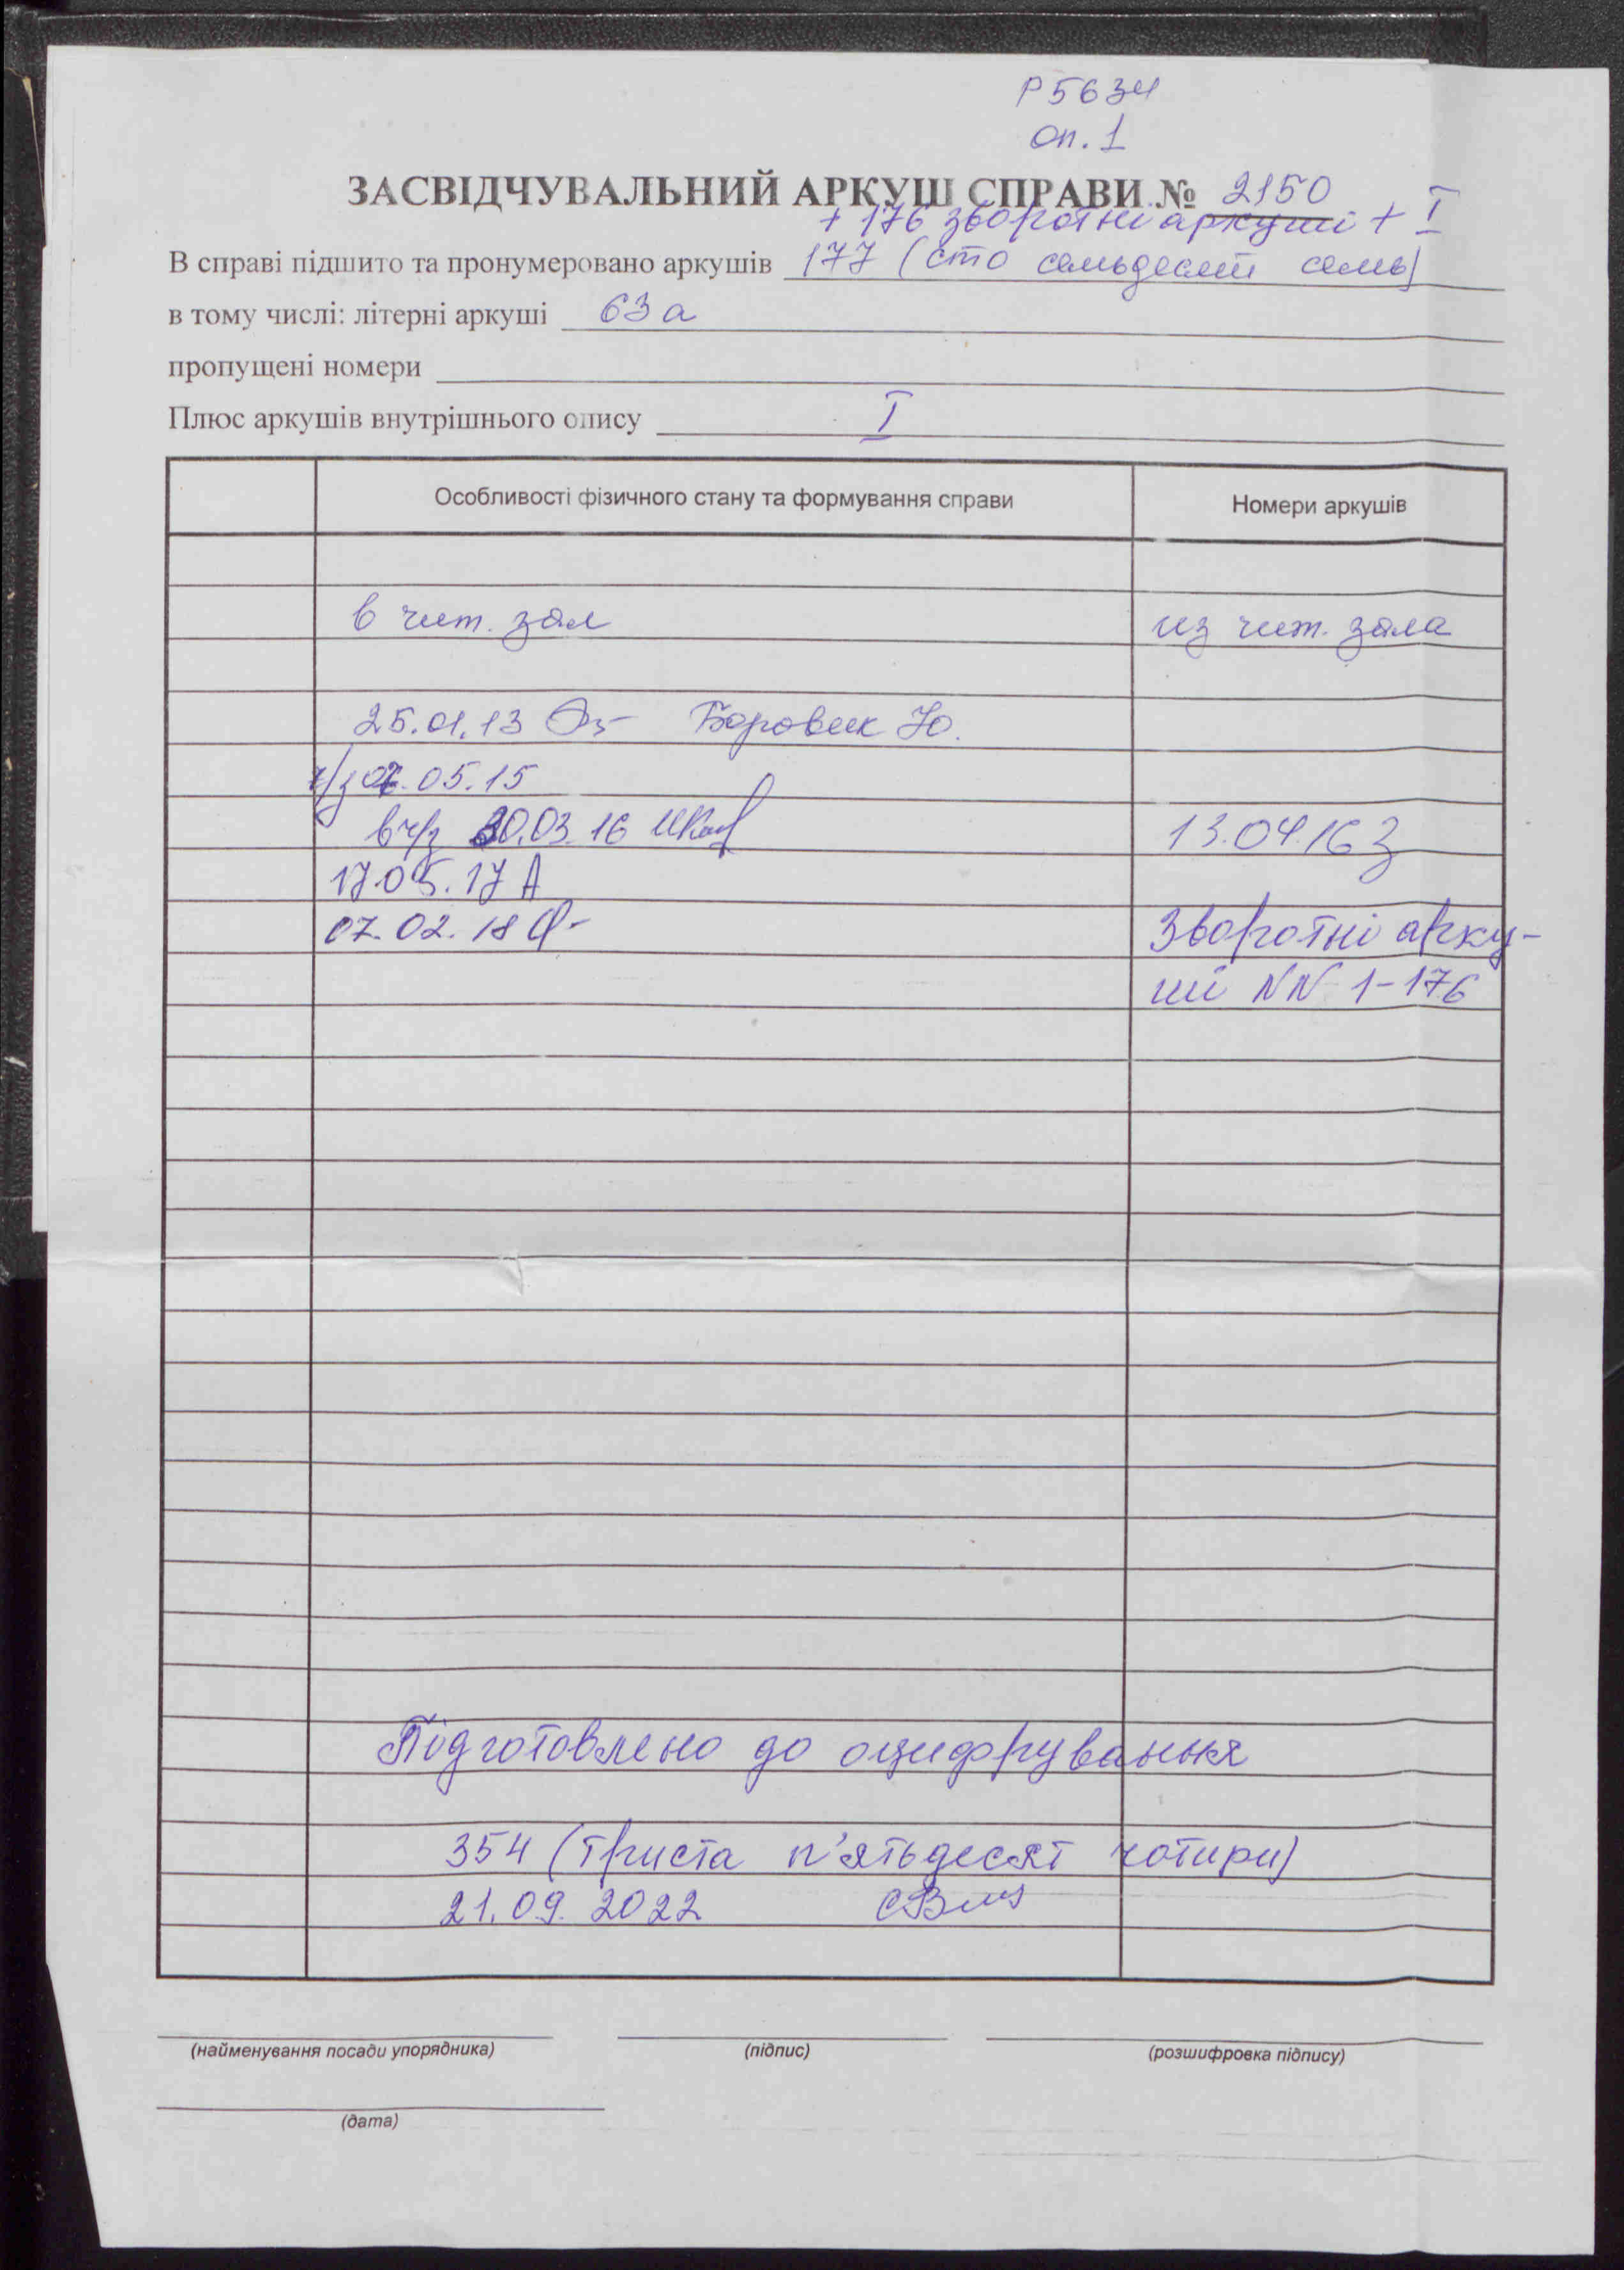 Р5634
оп. 1
ЗАСВІДЧУВАЛЬНИЙ АРКУШ СПРАВИ № 2150
+ 176 зворотні аркуші + I
В справі підшито та пронумеровано аркушів 177 (сто семьдесят семь)
в тому числі: літерні аркуші 63а
пропущені номери
Плюс аркушів внутрішнього опису I
Особливості фізичного стану та формування справи Номери аркушів
в чит. зал из чит. зала
25.01.13 Боровик Ю.
ч/з 07.05.15
в ч/з 30.03.16 13.04.16
17.05.17 А
07.02.18 Зворотні арку-
ші NN 1-176
Підготовлено до оцифрування
354 (триста п'ятьдесят чотири)
21.09.2022
(найменування посади упорядника) (підпис) (розшифровка підпису)
(дата)